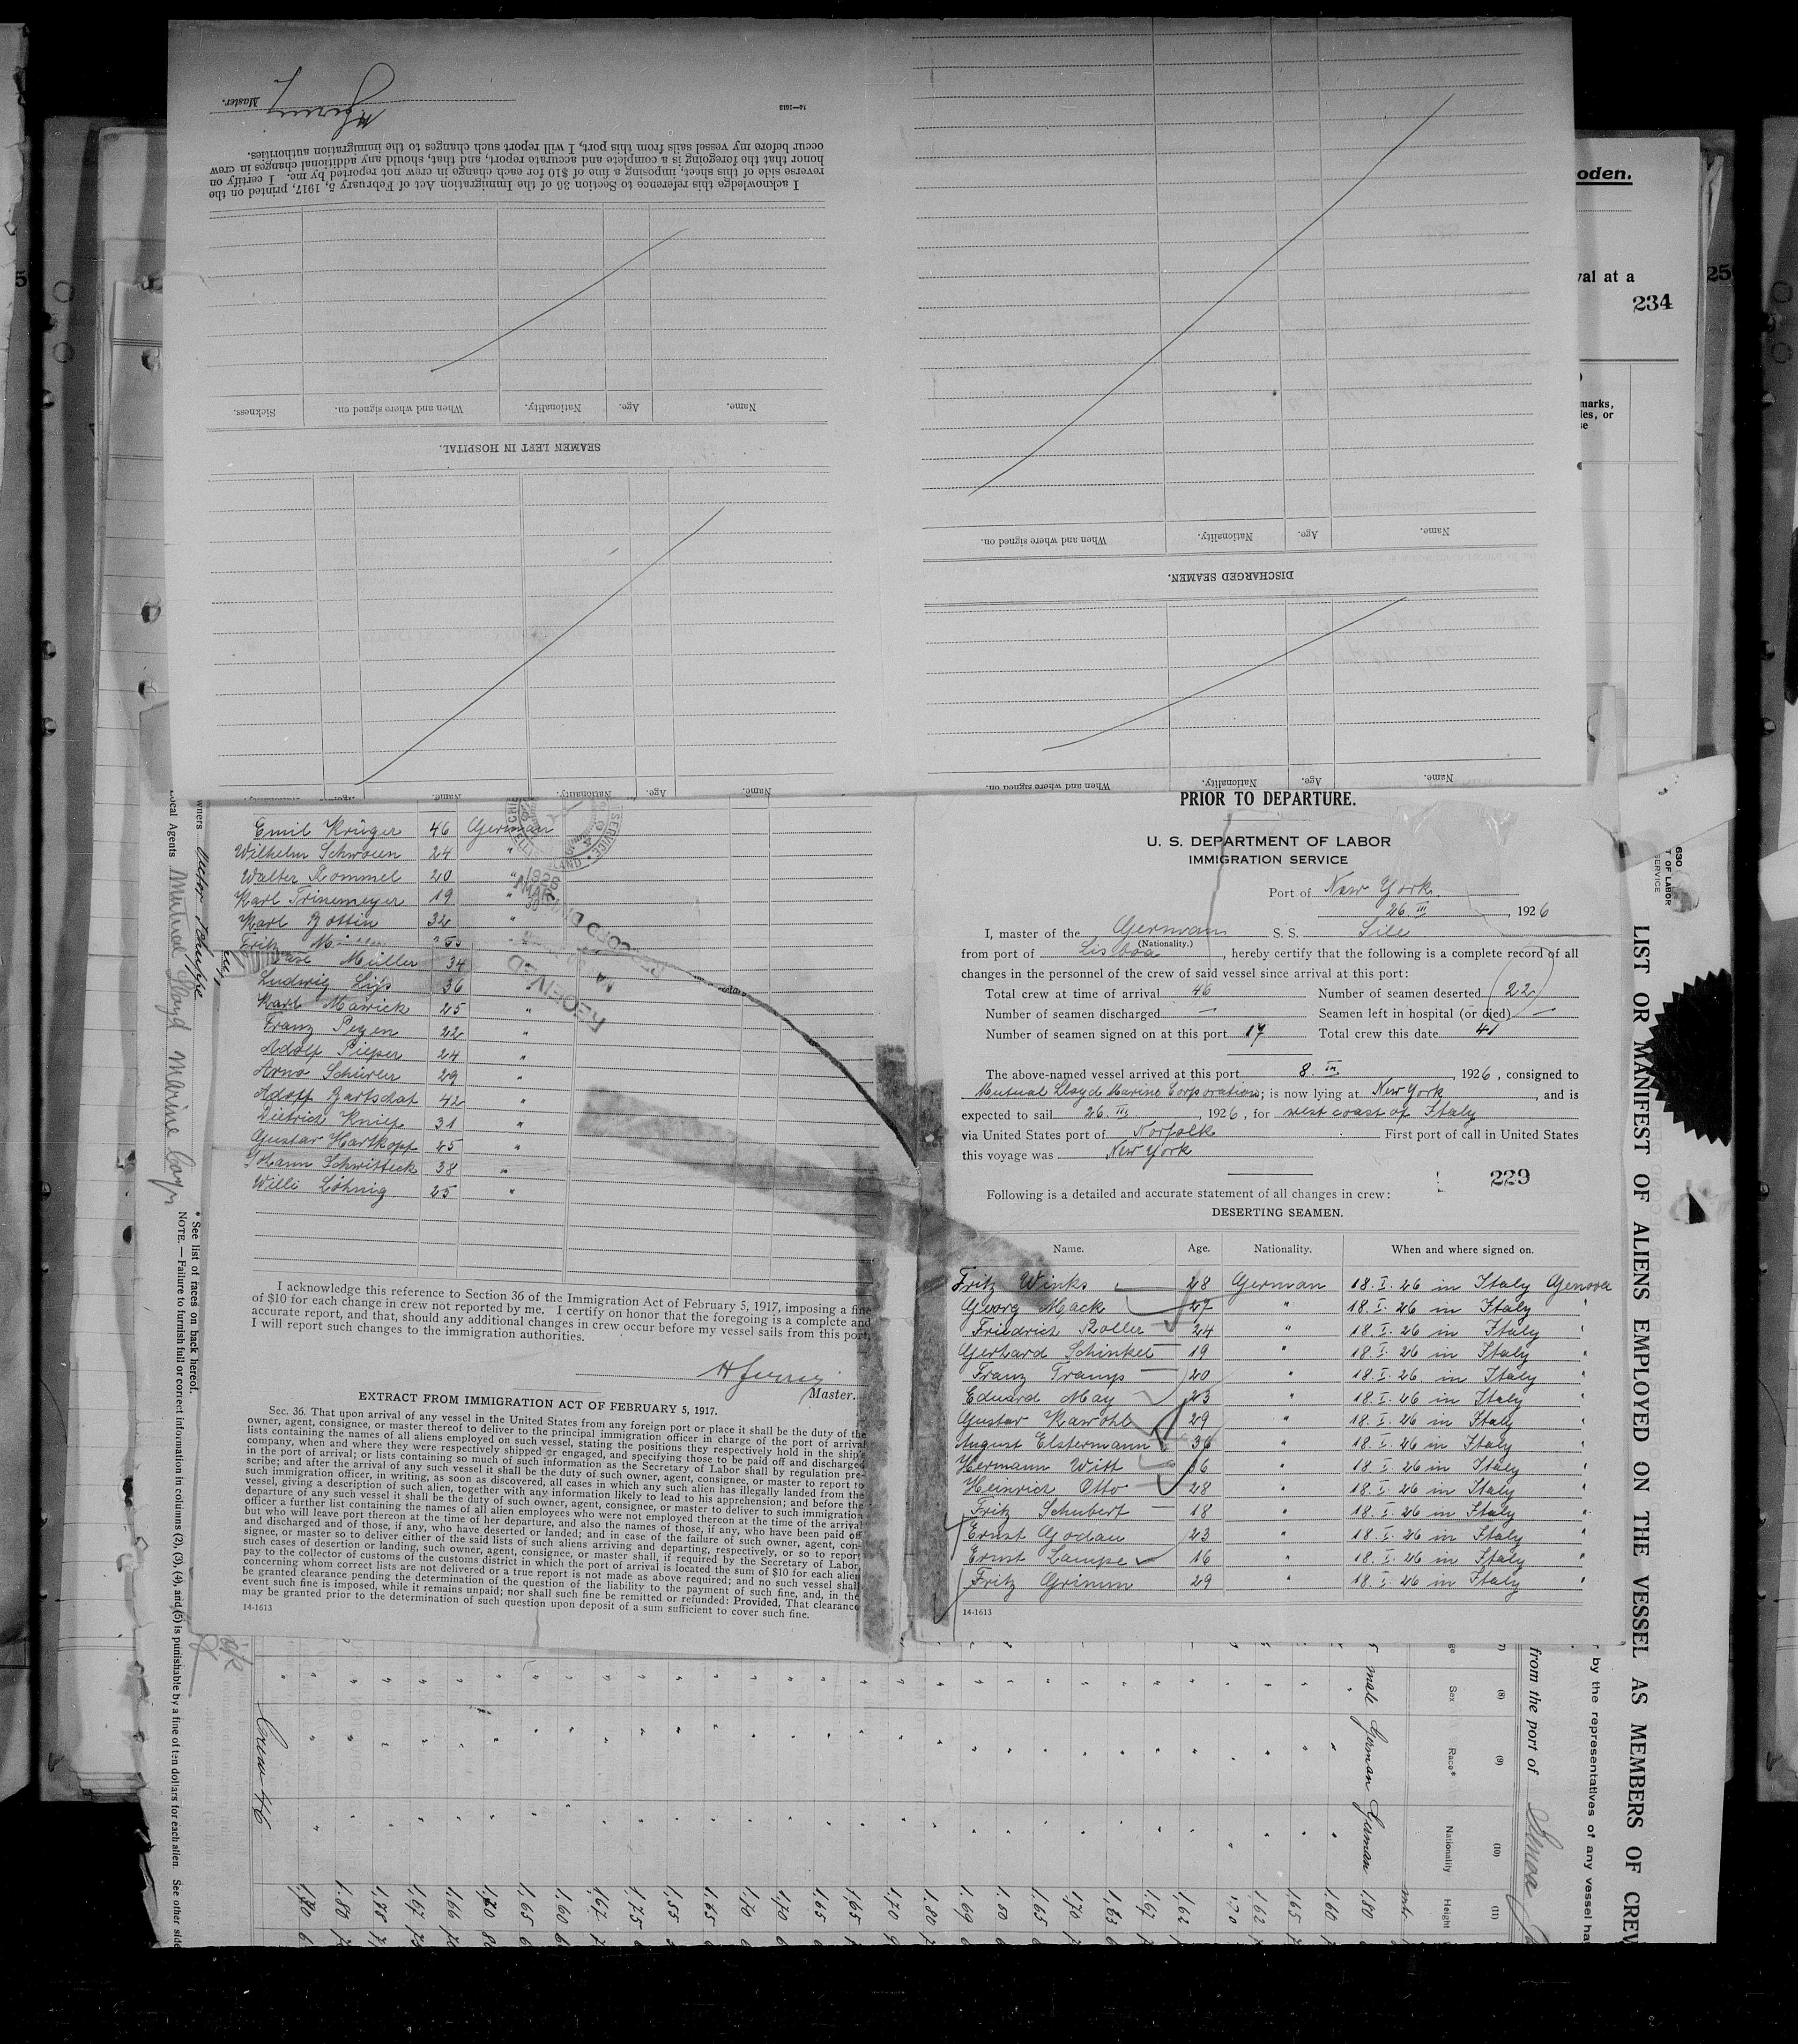 Master.
14—1613
I acknowledge this reference to Section 36 of the Immigration Act of February 5, 1917, printed on the
reverse side of this sheet, imposing a fine of $10 for each change in crew not reported by me. I certify on
honor that the foregoing is a complete and accurate report, and that, should any additional changes in crew
occur before my vessel sails from this port, I will report such changes to the immigration authorities.
Name. Age. Nationality. When and where signed on. Sickness.
SEAMEN LEFT IN HOSPITAL.
Name. Age. Nationality. When and where signed on.
DISCHARGED SEAMEN.
Name. Age. Nationality. When and where signed on.
oden.
val at a
234
25
marks,
les, or
se
Name. Age. Nationality. Name.
Emil Krüger 46 German
Wilhelm Schwoen 24 "
Walter Rommel 20 "
Karl Trinemeyer 19 "
Karl Gottin 32 "
Fritz
Müller 34
Ludwig Lips 36 "
Karl Mawick 25 "
Franz Pegen 22 "
Adolf Pieper 24 "
Arno Schürer 29 "
Adolf Gartschat 42 "
Dietrich Kniep 31 "
Gustav Hartkopf 45 "
Johann Schwitteck 38 "
Willi Löhnig 25 "
RECEIVED
RECORD DIVISION
1926 MAR 30
I acknowledge this reference to Section 36 of the Immigration Act of February 5, 1917, imposing a fine
of $10 for each change in crew not reported by me. I certify on honor that the foregoing is a complete and
accurate report, and that, should any additional changes in crew occur before my vessel sails from this port,
I will report such changes to the immigration authorities.
Master.
EXTRACT FROM IMMIGRATION ACT OF FEBRUARY 5, 1917.
Sec. 36. That upon arrival of any vessel in the United States from any foreign port or place it shall be the duty of the
owner, agent, consignee, or master thereof to deliver to the principal immigration officer in charge of the port of arrival
lists containing the names of all aliens employed on such vessel, stating the positions they respectively hold in the ship's
company, when and where they were respectively shipped or engaged, and specifying those to be paid off and discharged
in the port of arrival; or lists containing so much of such information as the Secretary of Labor shall by regulation pre-
scribe; and after the arrival of any such vessel it shall be the duty of such owner, agent, consignee, or master to report to
such immigration officer, in writing, as soon as discovered, all cases in which any such alien has illegally landed from the
vessel, giving a description of such alien, together with any information likely to lead to his apprehension; and before the
departure of any such vessel it shall be the duty of such owner, agent, consignee, or master to deliver to such immigration
officer a further list containing the names of all alien employees who were not employed thereon at the time of the arrival
but who will leave port thereon at the time of her departure, and also the names of those, if any, who have been paid off
and discharged and of those, if any, who have deserted or landed; and in case of the failure of such owner, agent, con-
signee, or master so to deliver either of the said lists of such aliens arriving and departing, respectively, or so to report
such cases of desertion or landing, such owner, agent, consignee, or master shall, if required by the Secretary of Labor,
pay to the collector of customs of the customs district in which the port of arrival is located the sum of $10 for each alien
concerning whom correct lists are not delivered or a true report is not made as above required; and no such vessel shall
be granted clearance pending the determination of the question of the liability to the payment of such fine, and, in the
event such fine is imposed, while it remains unpaid; nor shall such fine be remitted or refunded: Provided, That clearance
may be granted prior to the determination of such question upon deposit of a sum sufficient to cover such fine.
14-1613
PRIOR TO DEPARTURE.
U. S. DEPARTMENT OF LABOR
IMMIGRATION SERVICE
Port of New York
26. III, 1926
I, master of the German S. S. Sile
(Nationality.)
from port of Lisboa, hereby certify that the following is a complete record of all
changes in the personnel of the crew of said vessel since arrival at this port:
Total crew at time of arrival 46 Number of seamen deserted 22
Number of seamen discharged — Seamen left in hospital (or died) —
Number of seamen signed on at this port 17 Total crew this date 41
The above-named vessel arrived at this port 8. III, 1926, consigned to
Mutual Lloyd Marine Corporation; is now lying at New York, and is
expected to sail 26. III, 1926, for west coast of Italy
via United States port of Norfolk First port of call in United States
this voyage was New York
229
Following is a detailed and accurate statement of all changes in crew:
DESERTING SEAMEN.
Name. Age. Nationality. When and where signed on.
Fritz Winks 28 German 18. I. 26 in Italy Genova
Georg Mack 27 " 18. I. 26 in Italy "
Friedrich Roller 24 " 18. I. 26 in Italy "
Gerhard Schinkel 19 " 18. I. 26 in Italy "
Franz Tramp 20 " 18. I. 26. in Italy "
Eduard May 23 " 18. I. 26 in Italy "
Gustav Kawohl 29 " 18. I. 26 in Italy "
August Elstermann 36 " 18. I. 26 in Italy "
Hermann Witt 16 " 18. I. 26 in Italy "
Heinrich Otto 28 " 18. I. 26 in Italy "
Fritz Schubert 18 " 18. I. 26 in Italy "
Ernst Godau 23 " 18. I. 26 in Italy "
Ernst Lampe 16 " 18. I. 26 in Italy "
Fritz Grimm 29 " 18. I. 26 in Italy "
14-1613
LIST OR MANIFEST OF ALIENS EMPLOYED ON THE VESSEL AS MEMBERS OF CREW
by the representatives of any vessel ha
from the port of Genoa
(8) (9) (10) (11)
Sex Race* Nationality Height
male German German 1.80
1.60
1.65
1.62
1.62
1.67
1.63
1.70
1.65
1.69
1.80
1.70
1.65
1.65
1.70
1.70
1.65
1.55
1.75
1.67
1.60
1.65
1.66
1.67
1.78
Crew 46
Local Agents Mutual Lloyd Marine Corp.
* See list of races on back hereof.
NOTE.—Failure to furnish full or correct information in columns (2), (3), (4), and (5) is punishable by a fine of ten dollars for each alien. See other side